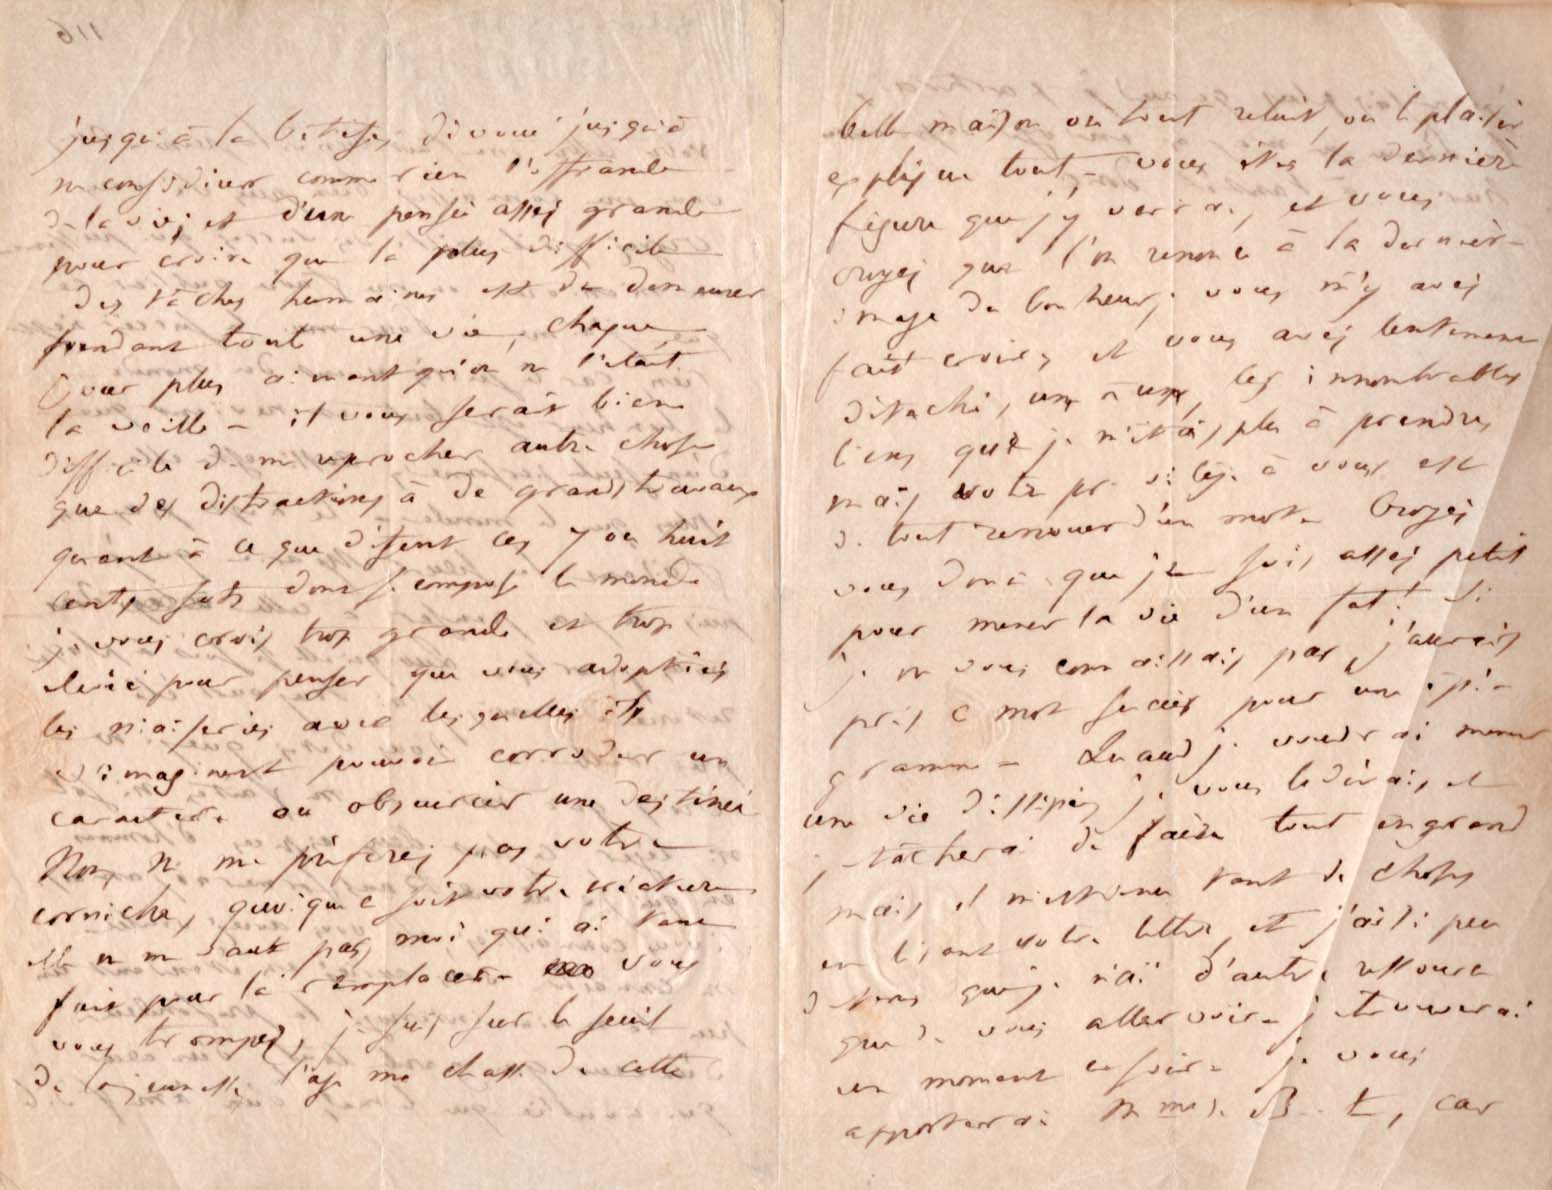 116
jusqu'à la bêtise, dévoué jusqu'à
ne considérer comme rien l'offrande
de la vie, et d'une pensée assez grande
pour croire que la plus difficile
des tâches humaines est de demeurer
pendant toute une vie, chaque
jour plus aimant qu'on ne l'était
la veille – il vous serait bien
difficile de me reprocher autre chose
que des distractions à de grands travaux
quant à ce que disent ces 7 ou huit
cents sots dont se compose le monde
je vous crois trop grande et trop
élevée pour penser que vous adoptiez
les niaiseries avec lesquelles ils
s'imaginent pouvoir corroder un
caractère ou obscurcir une destinée
Non, ne me préférez pas votre
corniche, quoique ce soit votre créature
elle ne me vaut pas, moi qui ai tant
fait pour la remplacer – vous
vous trompez, je suis sur le seuil
de la jeunesse l'âge me chasse de cette
belle maison où tout reluit, où le plaisir
explique tout, – vous êtes la dernière
figure que j'y verrai, et vous
croyez que l'on renonce à la dernière
image du bonheur; vous m'y avez
fait croire, et vous avez lentement
détaché, un à un, les innombrables
liens que je n'étais plus à prendre,
mais votre privilège à vous est
de tout renouer d'un mot – Croyez
vous donc que je sois assez petit
pour mener la vie d'un fat! Si
je ne vous connaissais pas, j'aurais
pris ce mot succès pour une épi-
gramme – Quand je voudrai mener
une vie dissipée, je vous le dirais, et
je tâcherai de faire tout en grand
mais, il m'est venu tant de choses
en lisant votre lettre, et j'ai si peu
de tems que je n'ai d'autre ressource
que de vous aller voir – je trouverai
un moment ce soir – je vous
apporterai Mme de B...t, car